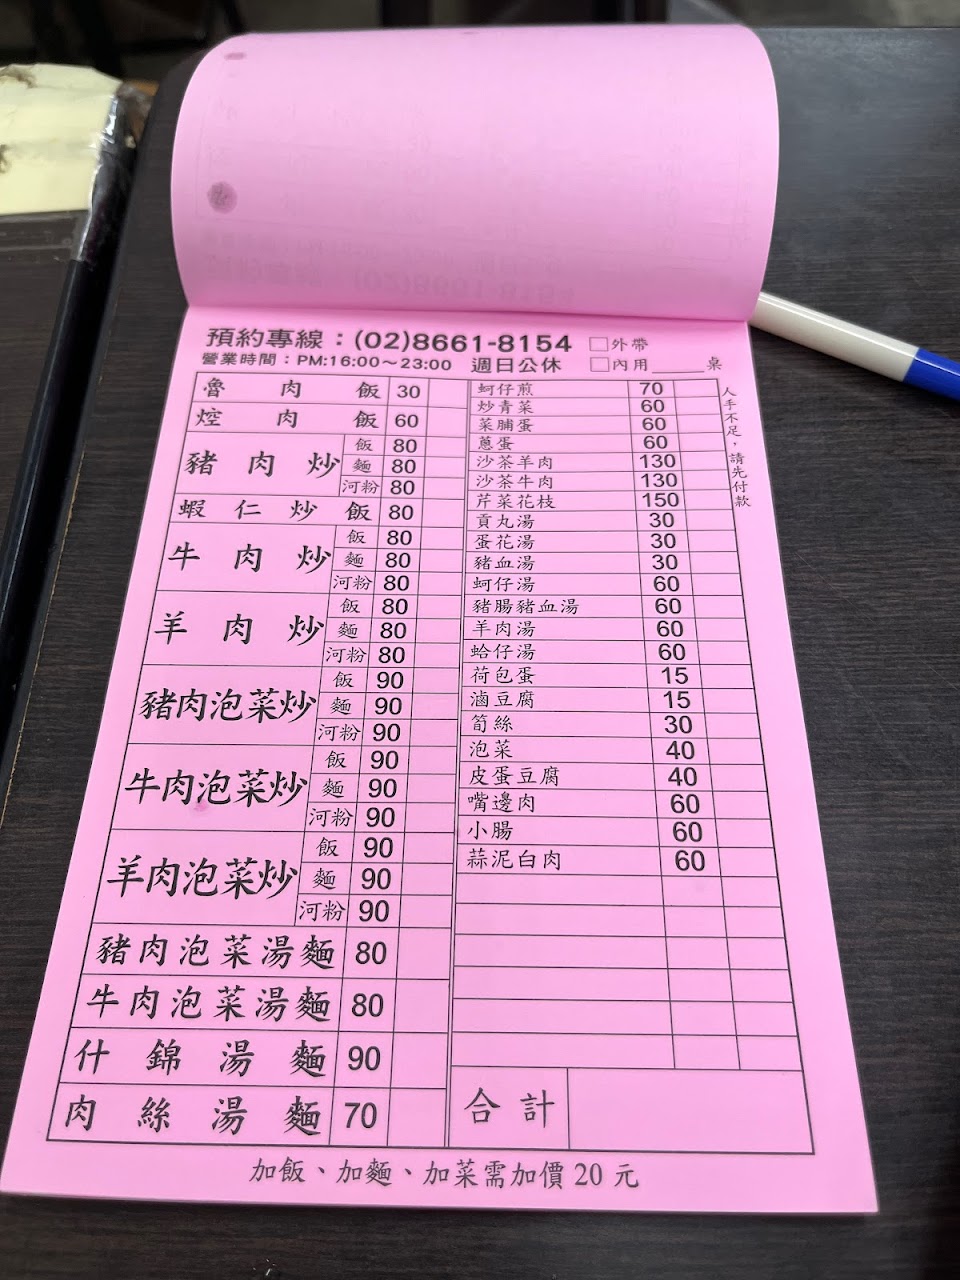 預約專線：(02)8661-8154
營業時間：PM:16:00～23:00 週日公休
□外帶
□內用_____桌
人手不足，請先付款
魯肉飯 30
焢肉飯 60
豬肉炒 飯 80
麵 80
河粉 80
蝦仁炒飯 80
牛肉炒 飯 80
麵 80
河粉 80
羊肉炒 飯 80
麵 80
河粉 80
豬肉泡菜炒 飯 90
麵 90
河粉 90
牛肉泡菜炒 飯 90
麵 90
河粉 90
羊肉泡菜炒 飯 90
麵 90
河粉 90
豬肉泡菜湯麵 80
牛肉泡菜湯麵 80
什錦湯麵 90
肉絲湯麵 70
蚵仔煎 70
炒青菜 60
菜脯蛋 60
蔥蛋 60
沙茶羊肉 130
沙茶牛肉 130
芹菜花枝 150
貢丸湯 30
蛋花湯 30
豬血湯 30
蚵仔湯 60
豬腸豬血湯 60
羊肉湯 60
蛤仔湯 60
荷包蛋 15
滷豆腐 15
筍絲 30
泡菜 40
皮蛋豆腐 40
嘴邊肉 60
小腸 60
蒜泥白肉 60
合計
加飯、加麵、加菜需加價 20 元